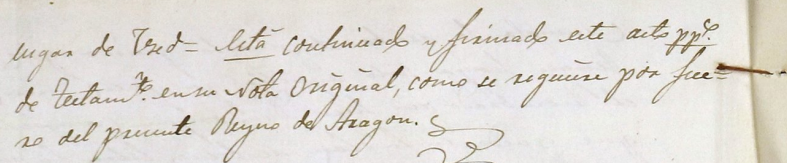 lugar de Used= Está continuado y firmado este acto pp.co
de Testam.to en su Nota Original, como se requiere por fue=
ro del presente Reyno de Aragon.